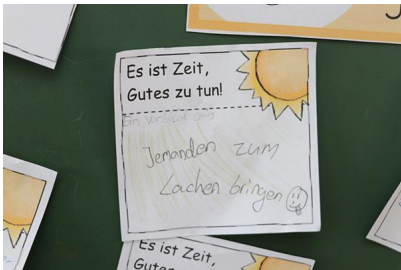 Es ist Zeit,
Gutes zu tun!
Jemanden zum
Lachen bringen
Es ist Zeit,
Gutes